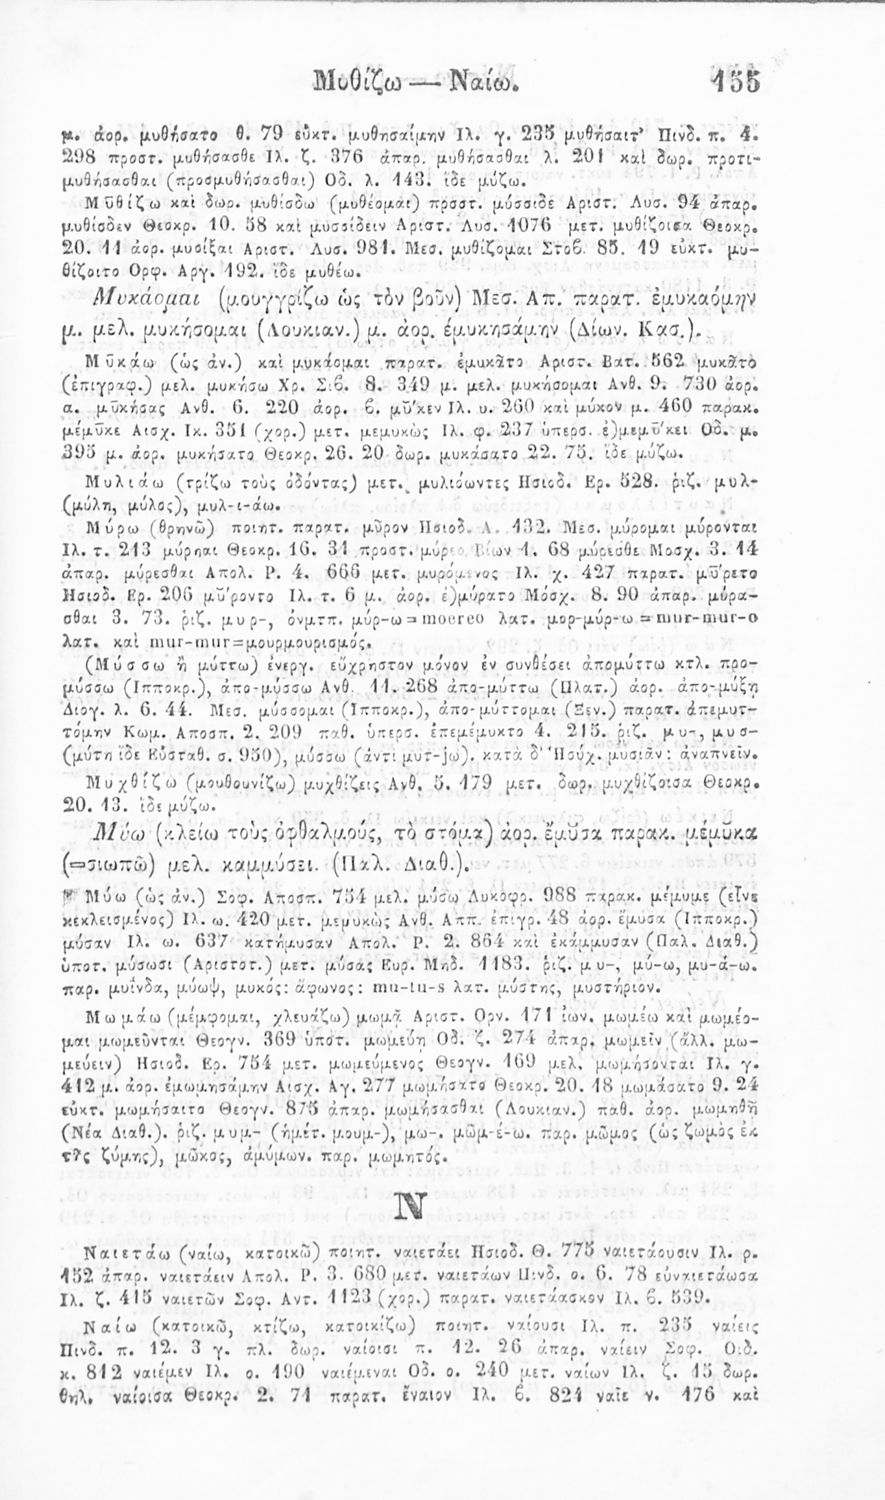 Μυθίζω — Ναίω. 155
μ. ἀορ. μυθήσατο θ. 79 εὐκτ. μυθησαίμην Ιλ. γ. 235 μυθήσαιτ' Πινδ. π. 4.
298 προστ. μυθήσασθε Ιλ. ζ. 376 ἀπαρ. μυθήσασθαι λ. 201 καὶ δωρ. προτι-
μυθήσασθαι (προσμυθήσασθαι) Οδ. λ. 143. ἴδε μύζω.
Μυθίζω καὶ δωρ. μυθίσδω (μυθέομαι) προστ. μύσσιδε Αριστ. Λυσ. 94 ἀπαρ.
μυθίσδεν Θεοκρ. 10. 58 καὶ μυσσίδειν Αριστ. Λυσ. 1076 μετ. μυθίζοισα Θεοκρ.
20. 11 ἀορ. μυσίξαι Αριστ. Λυσ. 981. Μεσ. μυθίζομαι Στοβ. 85. 19 εὐκτ. μυ-
θίζοιτο Ορφ. Αργ. 192. ἴδε μυθέω.
Μυκάομαι (μουγγρίζω ὡς τὸν βοῦν) Μεσ. Απ. παρατ. ἐμυκαόμην
μ. μελ. μυκήσομαι (Λουκιαν.) μ. ἀορ. ἐμυκησάμην (Δίων. Κασ.).
Μῡκάω (ὡς ἀν.) καὶ μυκάομαι παρατ. ἐμυκᾶτο Αριστ. Βατ. 562 μυκᾶτο
(ἐπιγραφ.) μελ. μυκήσω Χρ. Σιβ. 8. 349 μ. μελ. μυκήσομαι Ανθ. 9. 730 ἀορ.
α. μῡκήσας Ανθ. 6. 220 ἀορ. β. μῡ́κεν Ιλ. υ. 260 καὶ μύκον μ. 460 παρακ.
μέμῡκε Αισχ. Ικ. 351 (χορ.) μετ. μεμυκὼς Ιλ. φ. 237 ὑπερσ. ἐ)μεμῡ́κει Οδ. μ.
395 μ. ἀορ. μυκήσατο Θεοκρ. 26. 20 δωρ. μυκάσατο 22. 75. ἴδε μύζω.
Μυλιάω (τρίζω τοὺς ὀδόντας) μετ. μυλιόωντες Ησιοδ. Ερ. 528. ῥιζ. μυλ-
(μύλη, μύλος), μυλ-ι-άω.
Μύρω (θρηνῶ) ποιητ. παρατ. μῦρον Ησιοδ. Α. 132. Μεσ. μύρομαι μύρονται
Ιλ. τ. 213 μύρηαι Θεοκρ. 16. 31 προστ. μύρεο Βίων 1. 68 μύρεσθε Μοσχ. 3. 14
ἀπαρ. μύρεσθαι Απολ. Ρ. 4. 666 μετ. μυρόμενος Ιλ. χ. 427 παρατ. μῡ́ρετο
Ησιοδ. Ερ. 206 μῡ́ροντο Ιλ. τ. 6 μ. ἀορ. ἐ)μύρατο Μόσχ. 8. 90 ἀπαρ. μύρα-
σθαι 3. 73. ῥιζ. μυρ-, ὀνμτπ. μύρ-ω=moereo λατ. μορ-μύρ-ω=mur-mur-o
λατ. καὶ mur-mur=μουρμουρισμός.
(Μύσσω ἢ μύττω) ἐνεργ. εὔχρηστον μόνον ἐν συνθέσει ἀπομύττω κτλ. προ-
μύσσω (Ιπποκρ.), ἀπο-μύσσω Ανθ. 11. 268 ἀπο-μύττω (Πλατ.) ἀορ. ἀπο-μύξη
Διογ. λ. 6. 44. Μεσ. μύσσομαι (Ιπποκρ.), ἀπο-μύττομαι (Ξεν.) παρατ. ἀπεμυτ-
τόμην Κωμ. Αποσπ. 2. 209 παθ. ὑπερσ. ἐπεμέμυκτο 4. 215. ῥιζ. μυ-, μυσ-
(μύτη ἴδε Εὐσταθ. σ. 950), μύσσω (ἀντὶ μυτ-jω). κατὰ δ' Ἡσύχ. μυσιᾶν: ἀναπνεῖν.
Μυχθίζω (μουθουνίζω) μυχθίζεις Ανθ. 5. 179 μετ. δωρ. μυχθίζοισα Θεοκρ.
20. 13. ἴδε μύζω.
Μύω (κλείω τοὺς ὀφθαλμούς, τὸ στόμα) ἀορ. ἔμυσα παρακ. μέμυκα
(=σιωπῶ) μελ. καμμύσει. (Παλ. Διαθ.).
Μύω (ὡς ἀν.) Σοφ. Αποσπ. 754 μελ. μύσω Λυκοφρ. 988 παρακ. μέμυμε (εἶνε
κεκλεισμένος) Ιλ. ω. 420 μετ. μεμυκὼς Ανθ. Αππ. ἐπιγρ. 48 ἀορ. ἔμυσα (Ιπποκρ.)
μύσαν Ιλ. ω. 637 κατήμυσαν Απολ. Ρ. 2. 864 καὶ ἐκάμμυσαν (Παλ. Διαθ.)
ὑποτ. μύσωσι (Αριστοτ.) μετ. μύσας Ευρ. Μηδ. 1183. ῥιζ. μυ-, μύ-ω, μυ-ά-ω.
παρ. μυΐνδα, μύωψ, μυκός: ἄφωνος: mu-tu-s λατ. μύστης, μυστήριον.
Μωμάω (μέμφομαι, χλευάζω) μωμᾷ Αριστ. Ορν. 171 ἰων. μωμέω καὶ μωμέο-
μαι μωμεῦνται Θεογν. 369 ὑποτ. μωμεύη Οδ. ζ. 274 ἀπαρ. μωμεῖν (ἄλλ. μω-
μεύειν) Ησιοδ. Ερ. 754 μετ. μωμεύμενος Θεογν. 169 μελ. μωμήσονται Ιλ. γ.
412 μ. ἀορ. ἐμωμησάμην Αισχ. Αγ. 277 μωμήσατο Θεοκρ. 20. 18 μωμάσατο 9. 24
εὐκτ. μωμήσαιτο Θεογν. 875 ἀπαρ. μωμήσασθαι (Λουκιαν.) παθ. ἀορ. μωμηθῇ
(Νέα Διαθ.). ῥιζ. μυμ- (ἡμέτ. μουμ-), μω-. μῶμ-έ-ω. παρ. μῶμος (ὡς ζωμὸς ἐκ
τῆς ζύμης), μῶκος, ἀμύμων. παρ. μωμητός.
Ν
Ναιετάω (ναίω, κατοικῶ) ποιητ. ναιετάει Ησιοδ. Θ. 775 ναιετάουσιν Ιλ. ρ.
152 ἀπαρ. ναιετάειν Απολ. Ρ. 3. 680 μετ. ναιετάων Πινδ. ο. 6. 78 εὐναιετάωσα
Ιλ. ζ. 415 ναιετῶν Σοφ. Αντ. 1123 (χορ.) παρατ. ναιετάασκον Ιλ. β. 539.
Ναίω (κατοικῶ, κτίζω, κατοικίζω) ποιητ. ναίουσι Ιλ. π. 235 ναίεις
Πινδ. π. 12. 3 γ. πλ. δωρ. ναίοισι π. 12. 26 ἀπαρ. ναίειν Σοφ. Οιδ.
κ. 812 ναιέμεν Ιλ. ο. 190 ναιέμεναι Οδ. ο. 240 μετ. ναίων Ιλ. ζ. 15 δωρ.
θηλ. ναίοισα Θεοκρ. 2. 71 παρατ. ἔναιον Ιλ. β. 824 ναῖε ν. 176 καὶ